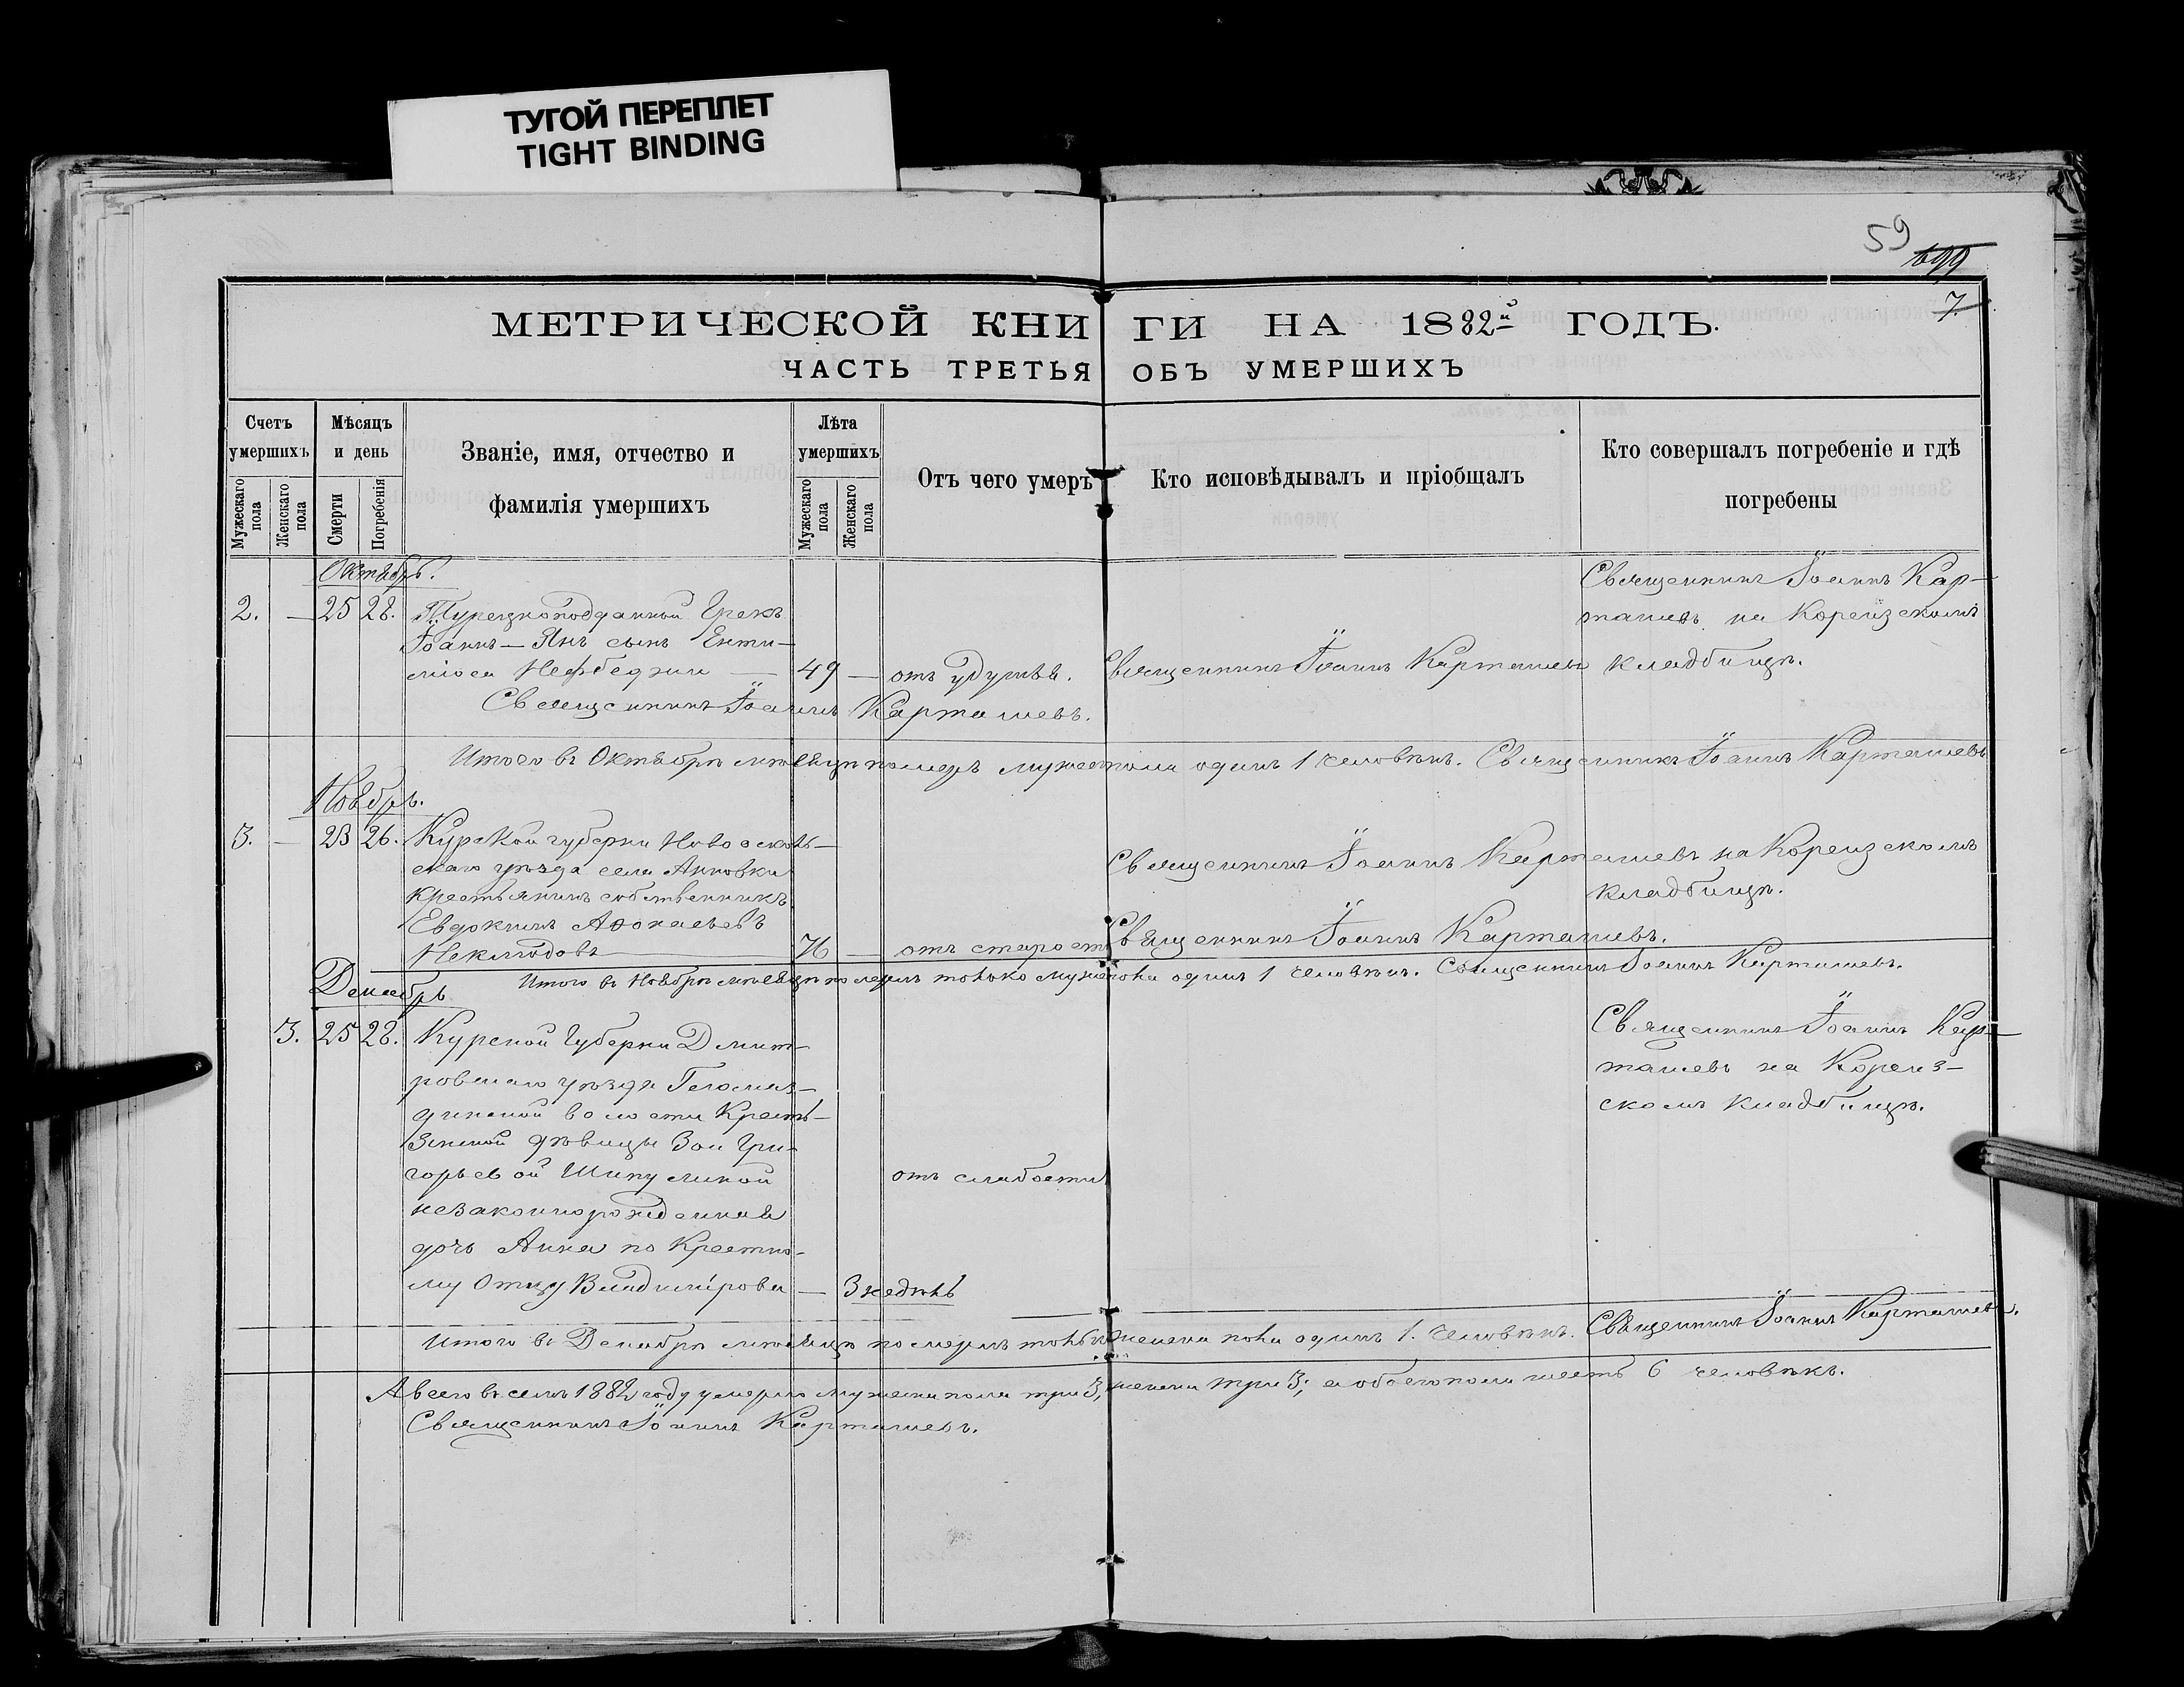 ТУГОЙ ПЕРЕПЛЕТ
TIGHT BINDING
59
699
7.
МЕТРИЧЕСКОЙ КНИГИ НА 1882й ГОДЪ.
ЧАСТЬ ТРЕТЬЯ ОБЪ УМЕРШИХЪ
Счетъ умершихъ
Мужескаго пола
Женскаго пола
Мѣсяцъ и день
Смерти
Погребенія
Званіе, имя, отчество и
фамилія умершихъ
Лѣта умершихъ
Мужескаго пола
Женскаго пола
Отъ чего умеръ
Кто исповѣдывалъ и пріобщалъ
Кто совершалъ погребеніе и гдѣ
погребены
Октябрь.
2. — 25 28. Турецкоподданной Грекъ
Іоаннъ — Янъ сынъ
49 — отъ удушья.
Священникъ Іоаннъ Карташевъ
Священникъ Іоаннъ Кар-
ташевъ на Кореизскомъ
кладбищѣ.
Священникъ Іоаннъ Карташевъ.
Итого въ Октябрѣ мѣсяцѣ померъ мужес пола одинъ 1 человѣкъ. Священникъ Іоаннъ Карташевъ
Ноябрь.
3. — 23 26. Курской губерни Новоосколь-
скаго уѣзда села Анновки
Крестьянинъ собственникъ
Евдокимъ
Неклюдовъ
76 — отъ старост
Священникъ Іоаннъ Карташевъ на Кореизскомъ
кладбищѣ.
Священникъ Іоаннъ Карташевъ.
Итого въ Ноябрѣ мѣсяцѣ померлъ только муже пола одинъ 1 человѣкъ. Священникъ Іоаннъ Карташевъ.
Декабрь
3. 25 28. Курской Губерни Дмит-
ровскаго уѣзда
волости Кресть-
янской дѣвицы Зои Гри-
горьевой Шикулиной
незаконнорожденная
дочь Анна по Крестно-
му Отцу Владимірова — 3 недѣль
отъ слабости
Священникъ Іоаннъ Кар-
ташевъ на Кореиз-
скомъ кладбищѣ.
Итого въ Декабрѣ мѣсяцѣ померлъ только женска пола одинъ 1. человѣкъ. Священникъ Іоаннъ Карташевъ.
А всего въ семъ 1882 году умерло мужеска пола три 3, женска три 3; а обоего пола шесть 6 человѣкъ.
Священникъ Іоаннъ Карташевъ.